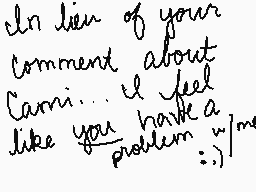 In lieu of your
comment about
Cami... I feel
like you have a
problem w/ me
:.)